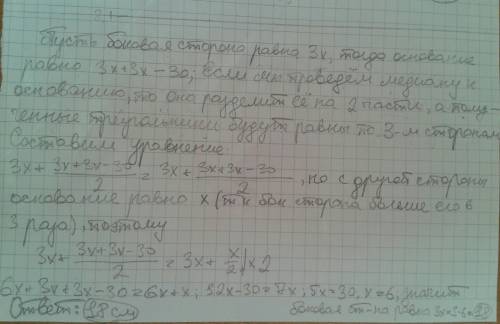 Пусть боковая сторона равна 3x, тогда основание
равно 3x+3x-30; если мы проведём медиану к
основанию, то она разделит её на 2 части, а полу-
ченные треугольники будут равны по 3-м сторонам
Составим уравнение.
3x + (3x+3x-30)/2 = 3x + (3x+3x-30)/2, но с другой стороны
основание равно x (т.к бок сторона больше его в
3 раза), поэтому
3x + (3x+3x-30)/2 = 3x + x/2 | x2
6x+3x+3x-30=6x+x; 12x-30=7x; 5x=30, x=6, значит
Ответ: 18 см боковая ст-на равна 3x=3·6=18